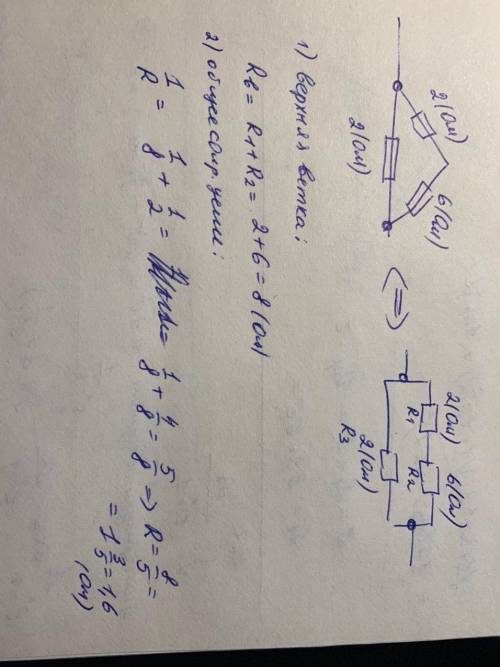 2(Ом) 6(Ом)
2(Ом)
(=)
2(Ом) 6(Ом)
R1 R2
2(Ом)
R3
1) верхняя ветка:
Rв = R1 + R2 = 2 + 6 = 8 (Ом)
2) общее сопр цепи:
1/R = 1/8 + 1/2 = = 1/8 + 4/8 = 5/8 => R = 8/5 =
= 1 3/5 = 1,6
(Ом)